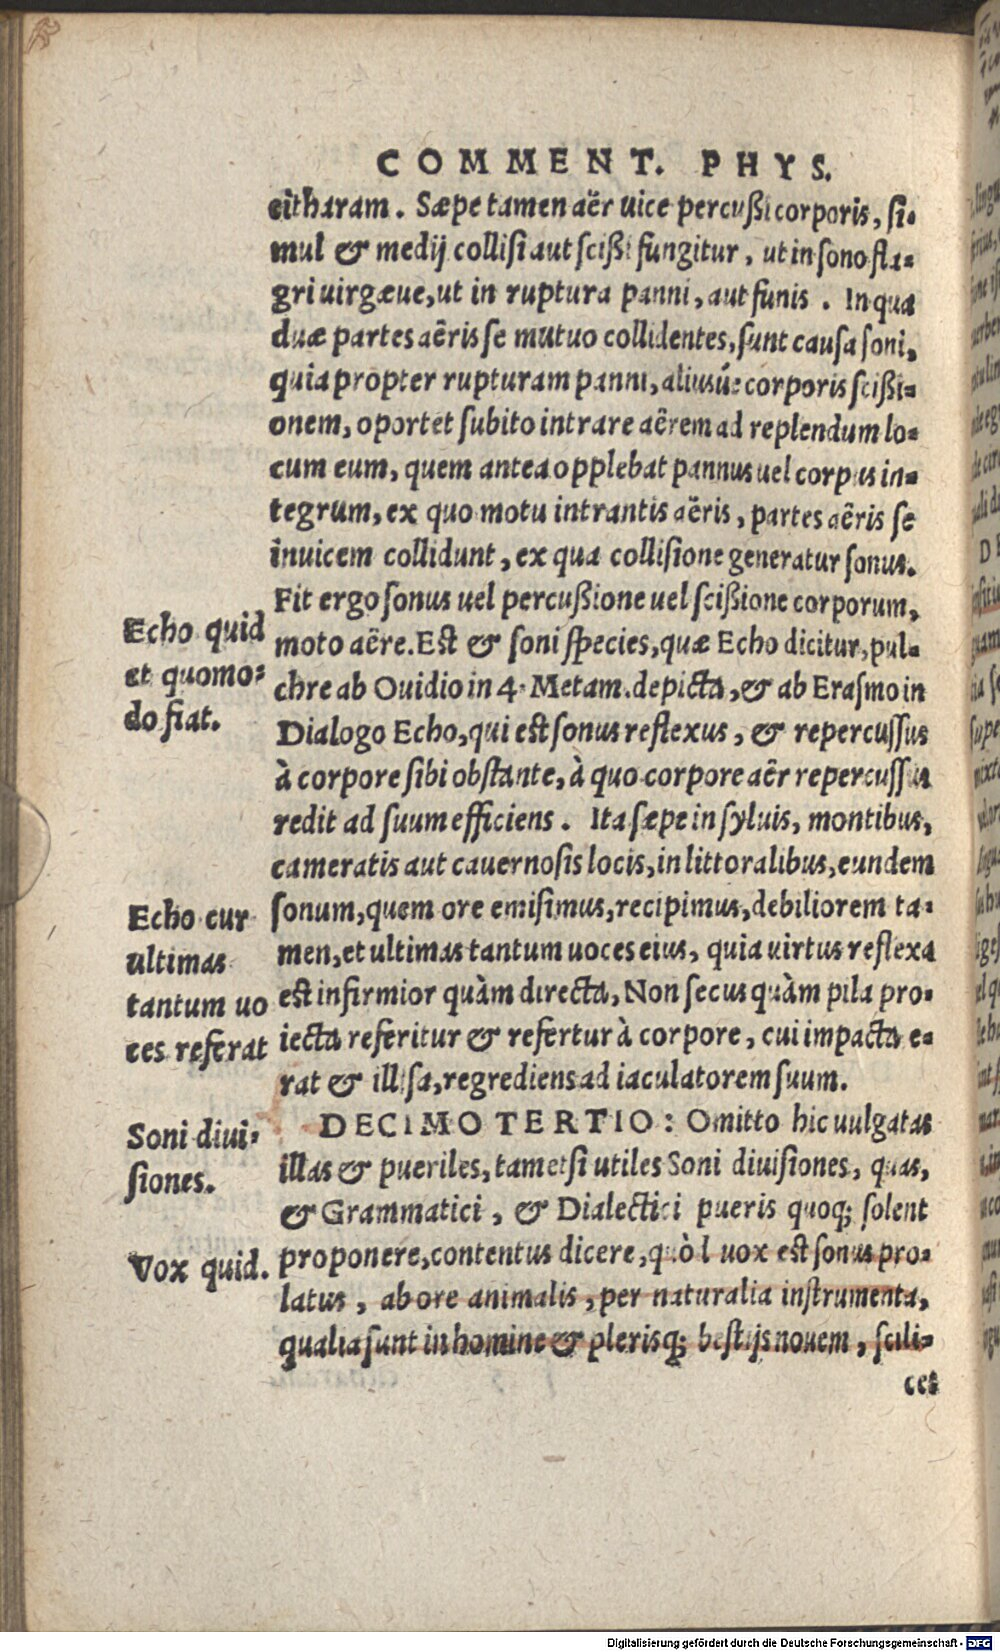 COMMENT. PHYS.
citharam. Sæpe tamen aër uice percußi corporis, si-
mul & medij collisi aut scißi fungitur, ut in sono fla-
gri uirgæue, ut in ruptura panni, aut funis. In qua
duæ partes aëris se mutuo collidentes, sunt causa soni,
quia propter rupturam panni, aliusúe corporis scißi-
onem, oportet subito intrare aërem ad replendum lo-
cum eum, quem antea opplebat pannus uel corpus in-
tegrum, ex quo motu intrantis aëris, partes aëris se
inuicem collidunt, ex qua collisione generatur sonus.
Fit ergo sonus uel percußione uel scißione corporum,
Echo quid
et quomo-
do fiat.
moto aëre. Est & soni species, quæ Echo dicitur, pul-
chre ab Ouidio in 4. Metam. depicta, & ab Erasmo in
Dialogo Echo, qui est sonus reflexus, & repercussus
à corpore sibi obstante, à quo corpore aër repercussus
redit ad suum efficiens. Ita sæpe in syluis, montibus,
cameratis aut cauernosis locis, in littoralibus, eundem
Echo cur
ultimas
tantum uo
ces referat
sonum, quem ore emisimus, recipimus, debiliorem ta-
men, et ultimas tantum uoces eius, quia uirtus reflexa
est infirmior quàm directa, Non secus quàm pila pro-
iecta referitur & refertur à corpore, cui impacta e-
rat & illisa, regrediens ad iaculatorem suum.
Soni diui-
siones.
DECIMO TERTIO: Omitto hic uulgatas
illas & pueriles, tametsi utiles Soni diuisiones, quas,
& Grammatici, & Dialectici pueris quoq; solent
Vox quid.
proponere, contentus dicere, quòd uox est sonus pro-
latus, ab ore animalis, per naturalia instrumenta,
qualia sunt in homine & plerisq; bestijs nouem, scili-
cet
Digitalisierung gefördert durch die Deutsche Forschungsgemeinschaft - DFG